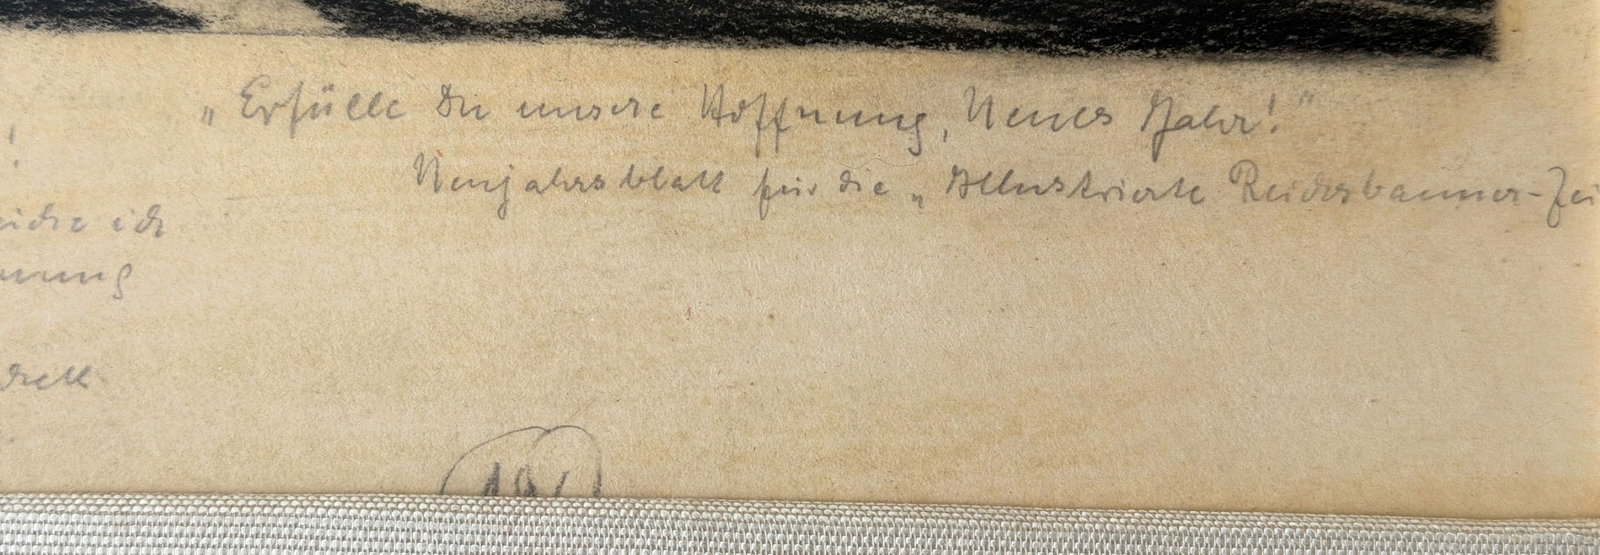 „Erfülle Du unsre Hoffnung, Neues Jahr!“
Neujahrsblatt für die „Illustrierte Reichsbanner-Zei
!
ich